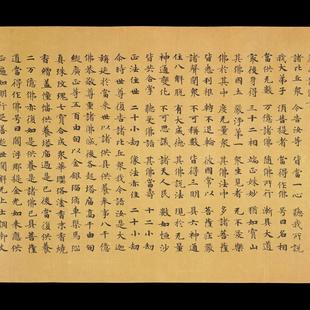 諸比丘衆 今告汝等 皆當一心 聽我所說
我大弟子 須菩提者 當得作佛 號曰名相
當供無數 萬億諸佛 隨佛所行 漸具大道
最後身得 三十二相 端正姝妙 猶如寶山
其佛國土 嚴淨第一 衆生見者 無不愛樂
佛於其中 度無量衆 其佛法中 多諸菩薩
皆悉利根 轉不退輪 彼國常以 菩薩莊嚴
諸聲聞衆 不可稱數 皆得三明 具六神通
住八解脫 有大威德 其佛說法 現於無量
神通變化 不可思議 諸天人民 數如恒沙
皆共合掌 聽受佛語 其佛當壽 十二小劫
正法住世 二十小劫 像法亦住 二十小劫
尒時世尊復告諸比丘衆我今語汝是大迦
旃延於當來世以諸供具供養奉事八千億
佛恭敬尊重諸佛滅後各起塔廟高千由旬
縱廣正等五百由旬以金銀瑠璃車𤦲馬瑙
真珠玫瑰七寶合成衆華瓔珞塗香末香燒
香繒蓋幢幡供養塔廟過是已後當復供養
二萬億佛亦復如是供養是諸佛已具菩薩
道當得作佛號曰閻浮那提金光如來應供
正遍知明行足善逝世間解無上士調御丈